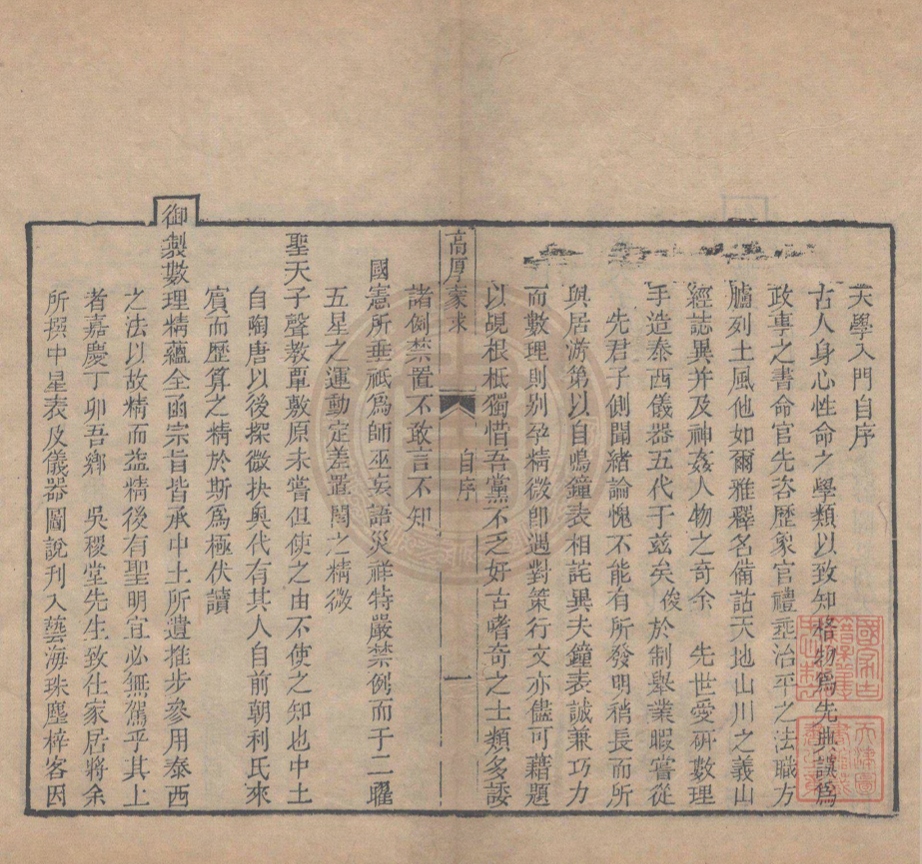 天學入門自序
古人身心性命之學類以致知格物爲先典謨爲
政事之書命官先咨歷象官禮埀治平之法職方
臚列土風他如爾雅釋名備詁天地山川之義山
經誌異并及神姦人物之奇余　先世愛研數理
手造泰西儀器五代于兹矣俊於制舉業暇嘗從
先君子側聞緒論愧不能有所發明稍長而所
與居游第以自鳴鐘表相詫異夫鐘表誠兼巧力
而數理則别孕精微卽遇對策行文亦儘可藉題
以覘根柢獨惜吾黨不乏好古嗜奇之士類多諉
諸例禁置不敢言不知
高厚蒙求
自序
一
國憲所垂祇爲師巫妄語災祥特嚴禁例而于二曜
五星之運動定差置閏之精微
聖天子聲教覃敷原未嘗但使之由不使之知也中土
自陶唐以後探微抉奥代有其人自前朝利氏來
賓而歷算之精於斯爲極伏讀
御製數理精蘊全函宗旨皆承中土所遺推步參用泰西
之法以故精而益精後有聖明宜必無駕乎其上
者嘉慶丁卯吾鄉　吳稷堂先生致仕家居將余
所撰中星表及儀器圖說刊入藝海珠塵梓客因